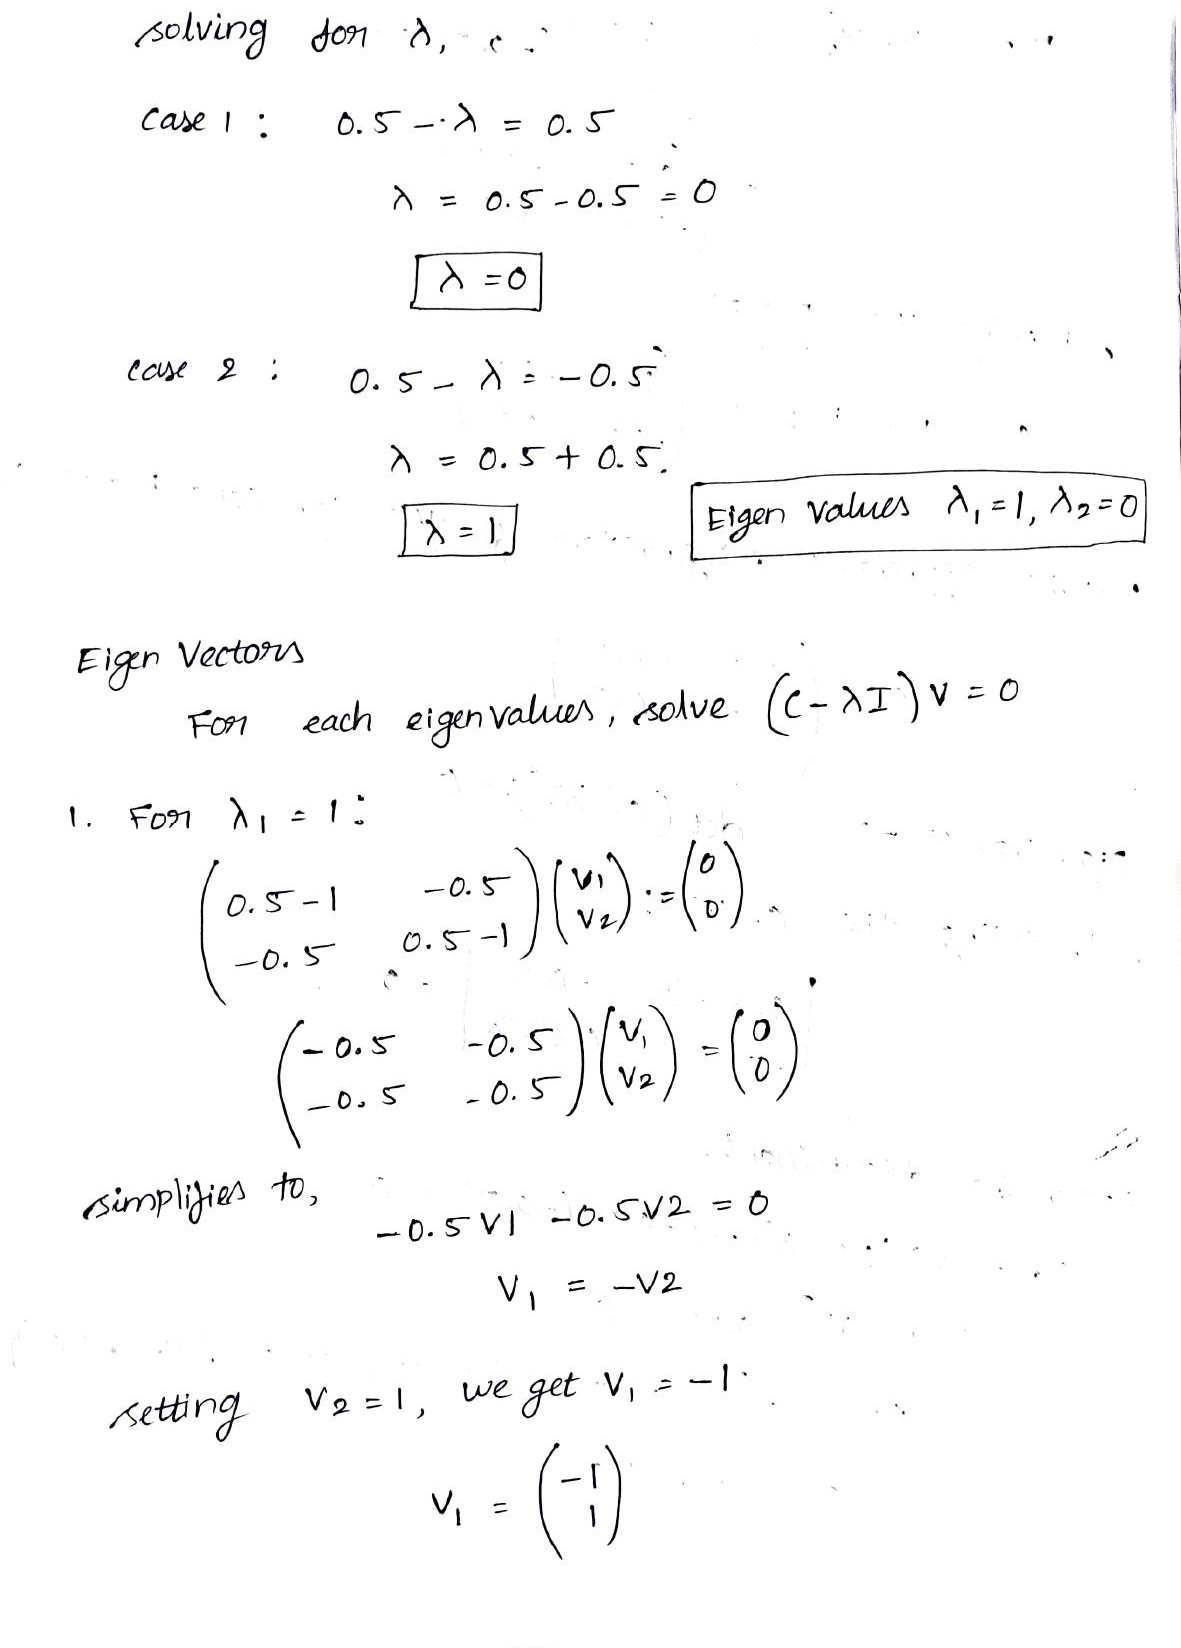 solving for λ,
case 1 : 0.5 - λ = 0.5
λ = 0.5 - 0.5 = 0
λ = 0
case 2 : 0.5 - λ = -0.5
λ = 0.5 + 0.5.
λ = 1
Eigen values λ₁ = 1, λ₂ = 0
Eigen Vectors
For each eigenvalues, solve (C - λI) v = 0
1. For λ₁ = 1 :
(0.5 - 1 -0.5) (v₁) = (0)
(-0.5 0.5 - 1) (v₂) (0)
(-0.5 -0.5) (v₁) = (0)
(-0.5 -0.5) (v₂) (0)
simplifies to,
-0.5 v1 - 0.5 v2 = 0
v₁ = -v2
setting v₂ = 1, we get v₁ = -1.
v₁ = (-1)
(1)